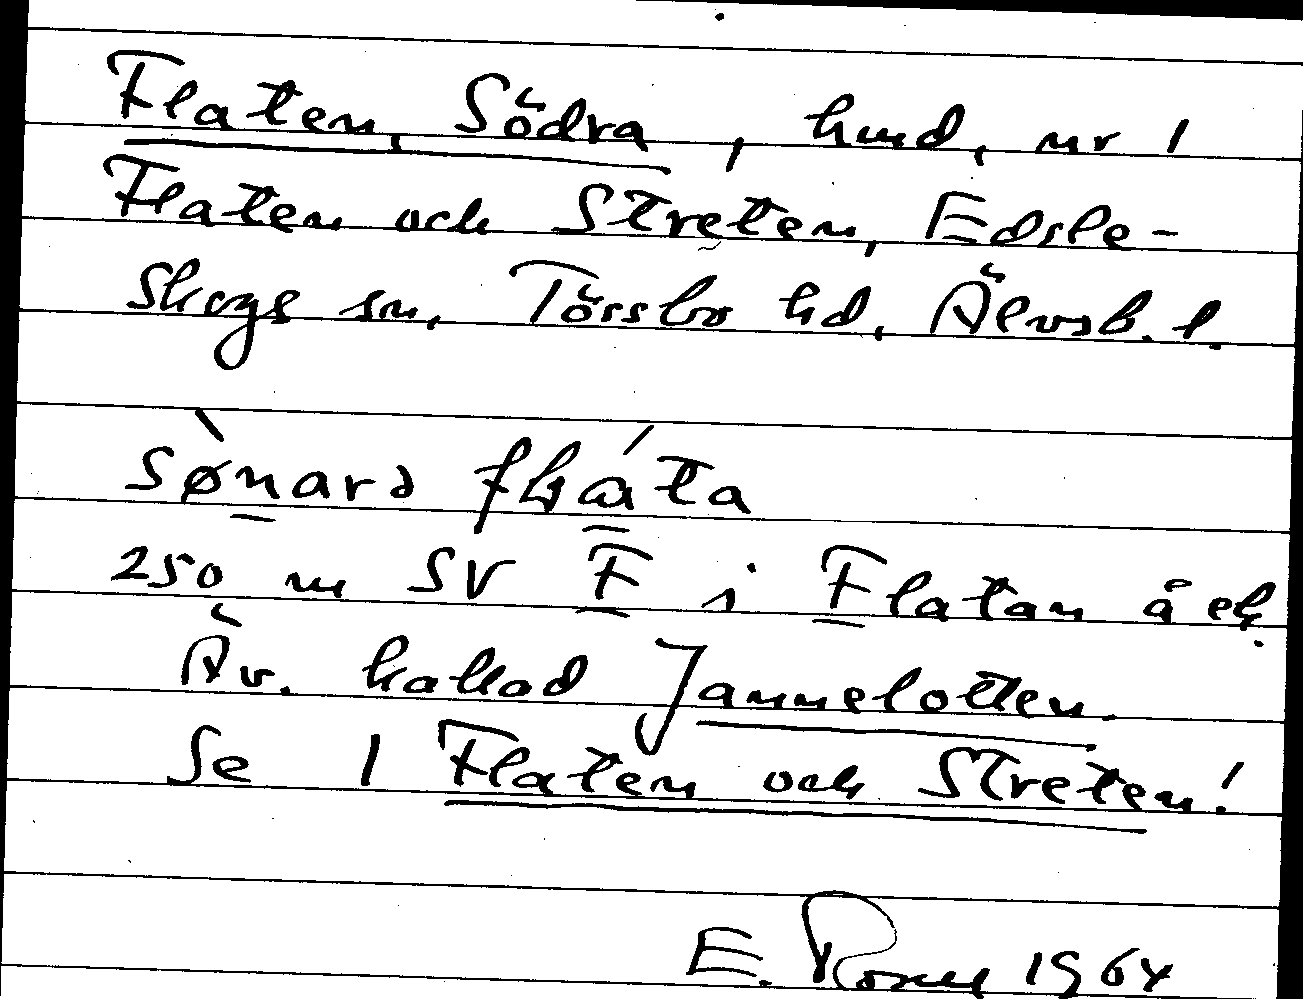 Flaten, Södra, hmd, nr 1
Flaten och Streten, Edsle-
skogs sn, Tössbo hd, Älvsb. l.
sø̀narə
250 m SV F i Flatan å ek.
Äv. kallad Jannelotten.
Se 1 Flaten och Streten!
E. 1964